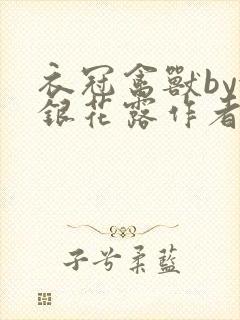 衣冠禽獸by
銀花露作者
子兮柔藍